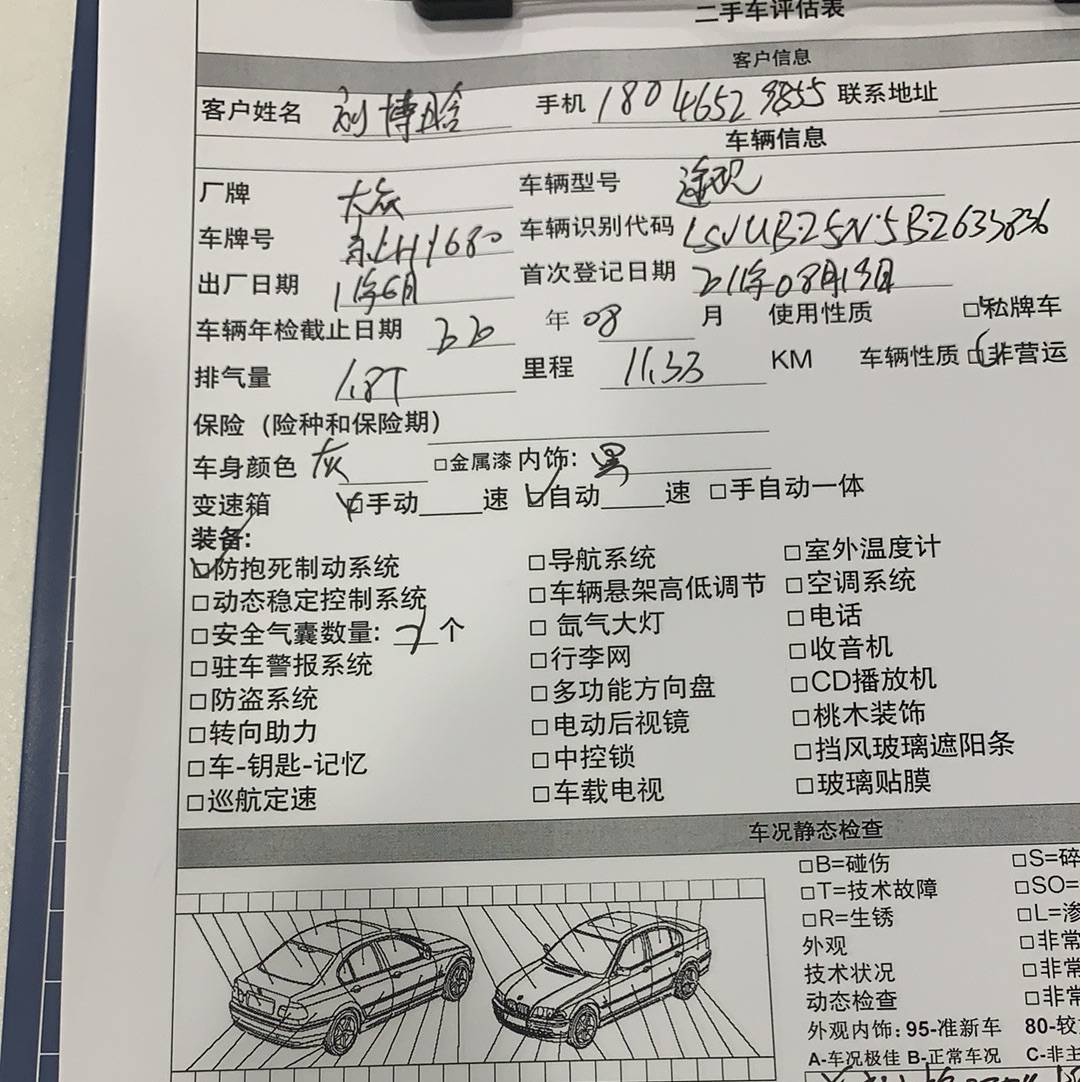 二手车评估表
客户信息
客户姓名 刘博晗 手机 180 4652 9855 联系地址
车辆信息
厂牌 大众 车辆型号 途观
车牌号 车辆识别代码 LSVUB25N5B2633836
出厂日期 11年6月 首次登记日期
车辆年检截止日期 20 年 08 月 使用性质 □私牌车
排气量 1.8T 里程 11.33 KM 车辆性质 □非营运
保险（险种和保险期）
车身颜色 灰 □金属漆 内饰: 黑
变速箱 □手动 速 □自动 速 □手自动一体
装备:
□防抱死制动系统 □导航系统 □室外温度计
□动态稳定控制系统 □车辆悬架高低调节 □空调系统
□安全气囊数量: 个 □氙气大灯 □电话
□驻车警报系统 □行李网 □收音机
□防盗系统 □多功能方向盘 □CD播放机
□转向助力 □电动后视镜 □桃木装饰
□车-钥匙-记忆 □中控锁 □挡风玻璃遮阳条
□巡航定速 □车载电视 □玻璃贴膜
车况静态检查
□B=碰伤 □S=碎
□T=技术故障 □SO=
□R=生锈 □L=渗
外观 □非常
技术状况 □非常
动态检查 □非常
外观内饰: 95-准新车 80-较
A-车况极佳 B-正常车况 C-非主